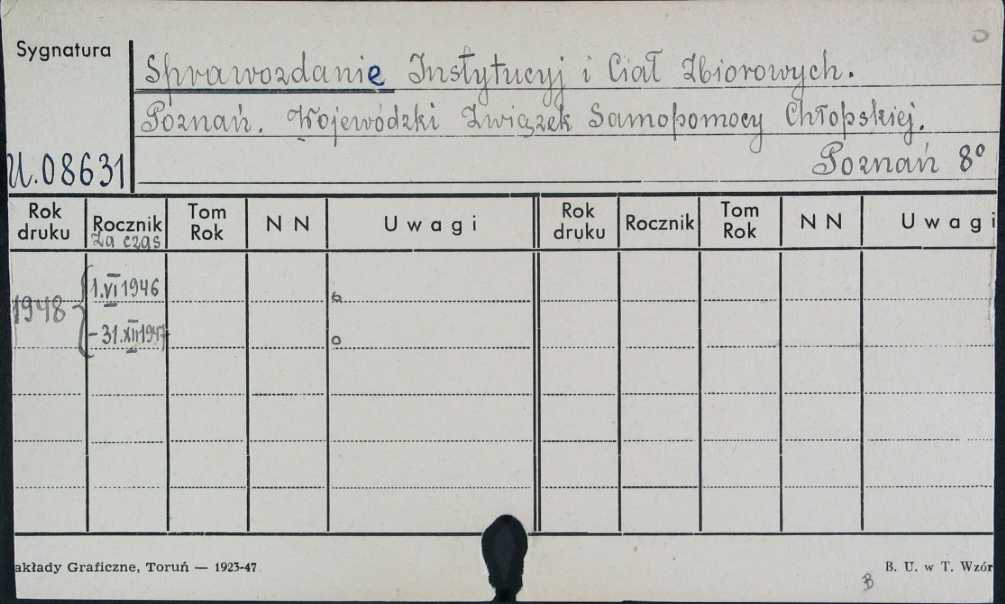 Sygnatura
Sprawozdanie Instytucyj i Ciał Zbiorowych.
Poznań. Wojewódzki Związek Samopomocy Chłopskiej.
U.08631
Poznań 8º
Rok druku Rocznik Tom Rok N N Uwagi Rok druku Rocznik Tom Rok N N Uwagi
za czas
1948 { 1.VI 1946
- 31.XII 1947
akłady Graficzne, Toruń — 1923-47
B. U. w T. Wzór
B